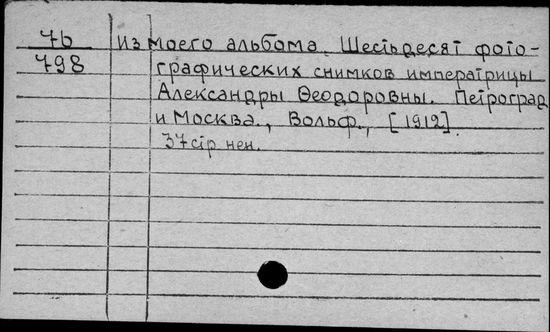 76 Из моего альбома. Шестьдесят фото-
798 графических снимков императрицы
Александры Ѳеодоровны. Петроград
и Москва., Вольф., [1912].
37 стр нен.